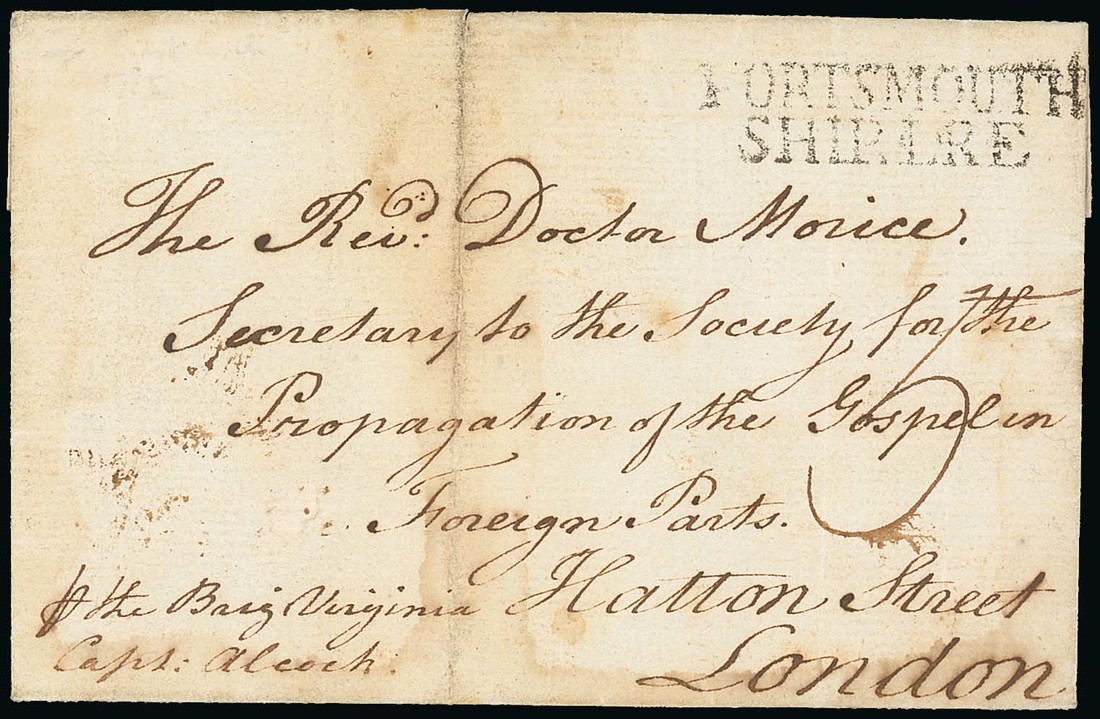 PORTSMOUTH
SHIP LRE
The Revd: Doctor Morice.
Secretary to the Society for the
Propagation of the Gospel in
Foreign Parts.
Hatton Street
London
⅌ the Brig Virginia
Capt: Alcock.